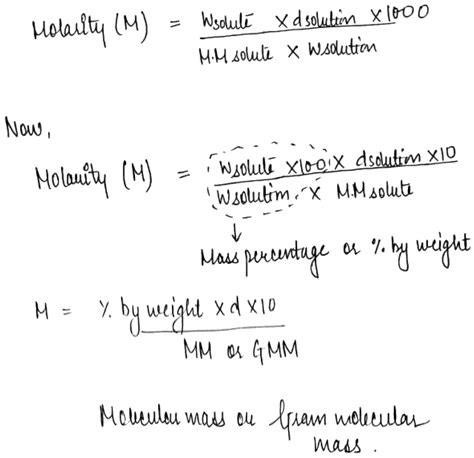 Molarity (M) = Wsolute X dsolution X1000
M.M solute X Wsolution
Now,
Molarity (M) = Wsolute X100 X dsolution X10
Wsolution X MM solute
↓
Mass percentage or % by weight
M = % by weight X d X10
MM or GMM
Molecular mass or Gram molecular
mass.